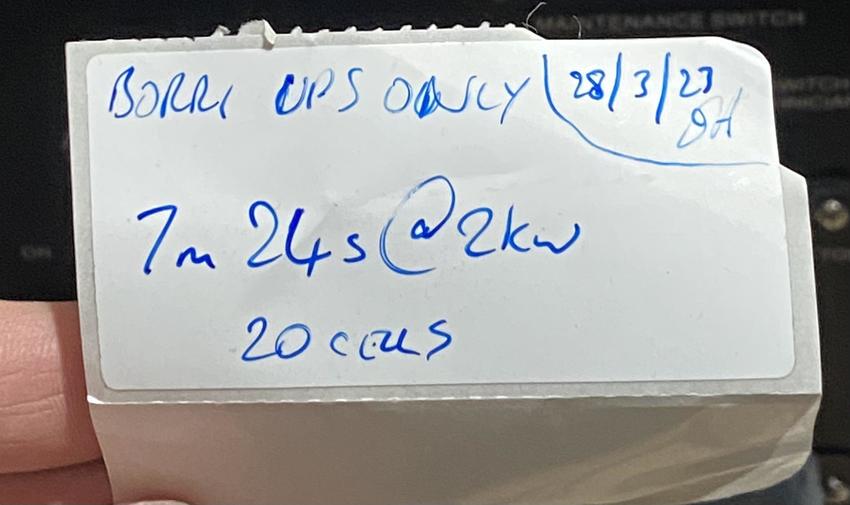 MAINTENANCE SWITCH
BORRI UPS ONLY
28/3/23
7m 24s @ 2kw
20 CELLS
ON